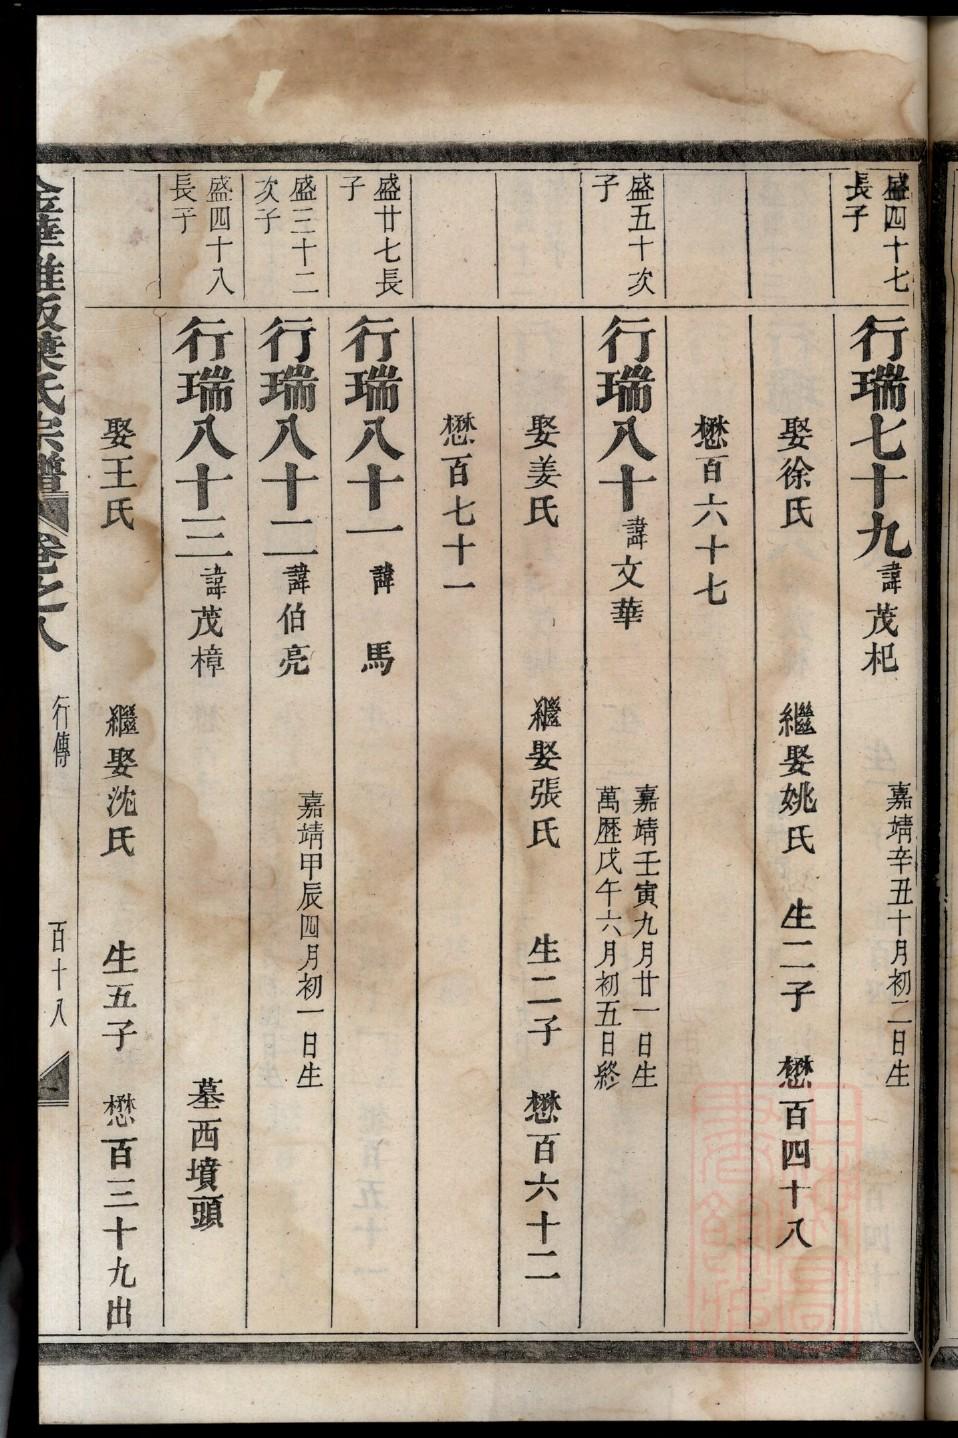 盛四十七
長子
行瑞七十九諱茂杞
嘉靖辛丑十月初二日生
娶徐氏 繼娶姚氏 生二子 懋百四十八
懋百六十七
盛五十次
子
行瑞八十諱文華
嘉靖壬寅九月廿一日生
萬歷戊午六月初五日終
娶姜氏 繼娶張氏 生二子 懋百六十二
懋百七十一
盛廿七長
子
行瑞八十一諱 馬
盛三十二
次子
行瑞八十二諱伯亮
嘉靖甲辰四月初一日生
盛四十八
長子
行瑞八十三諱茂樟 墓西墳頭
娶王氏 繼娶沈氏 生五子 懋百三十九出
金華 葉氏宗譜 卷之八 行傳 百十八